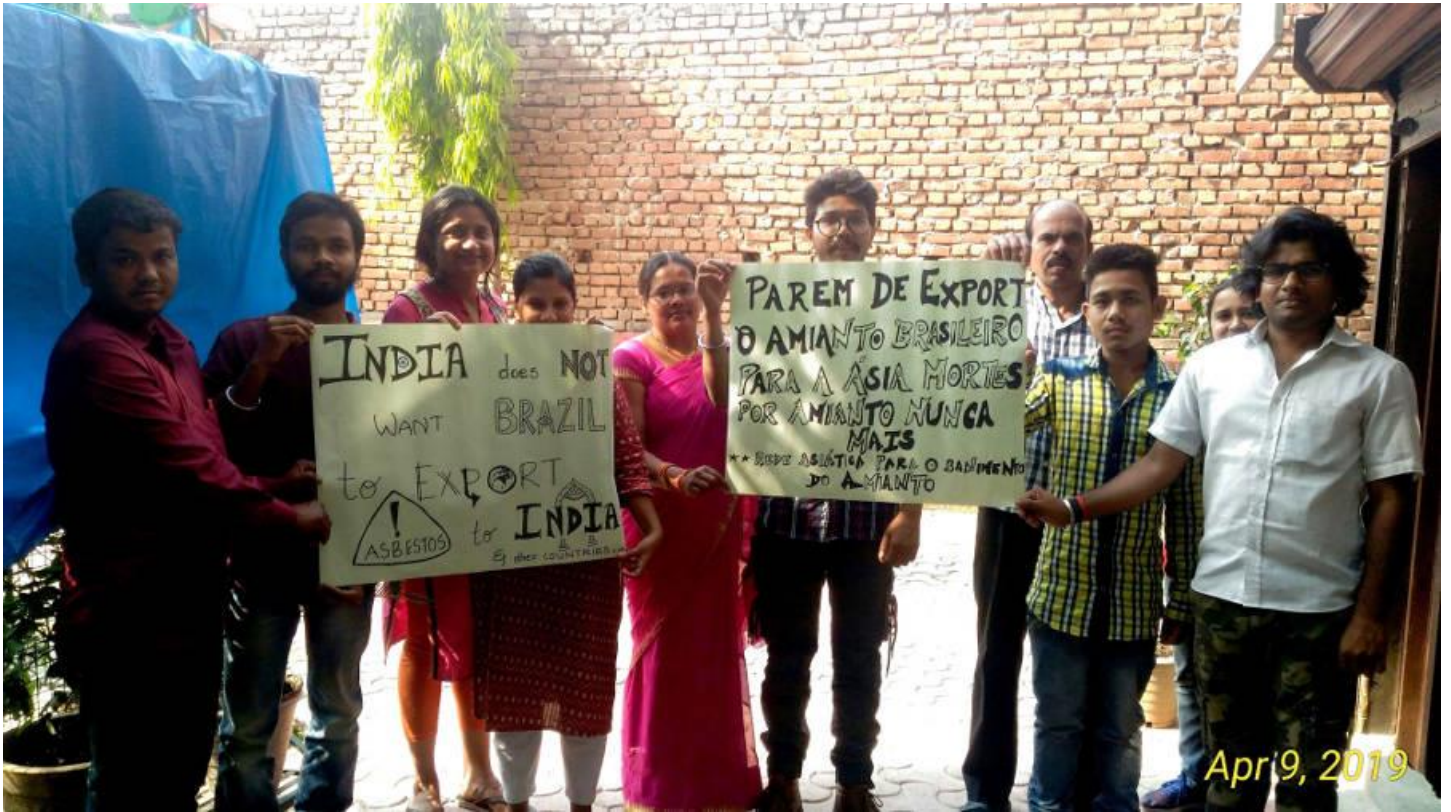 INDIA does NOT
WANT BRAZIL
to EXPORT
! ASBESTOS to INDIA
& other COUNTRIES
PAREM DE EXPORT
O AMIANTO BRASILEIRO
PARA A ÁSIA MORTES
POR AMIANTO NUNCA
MAIS
** REDE ASIÁTICA PARA O BANIMENTO
DO AMIANTO
Apr 9, 2019